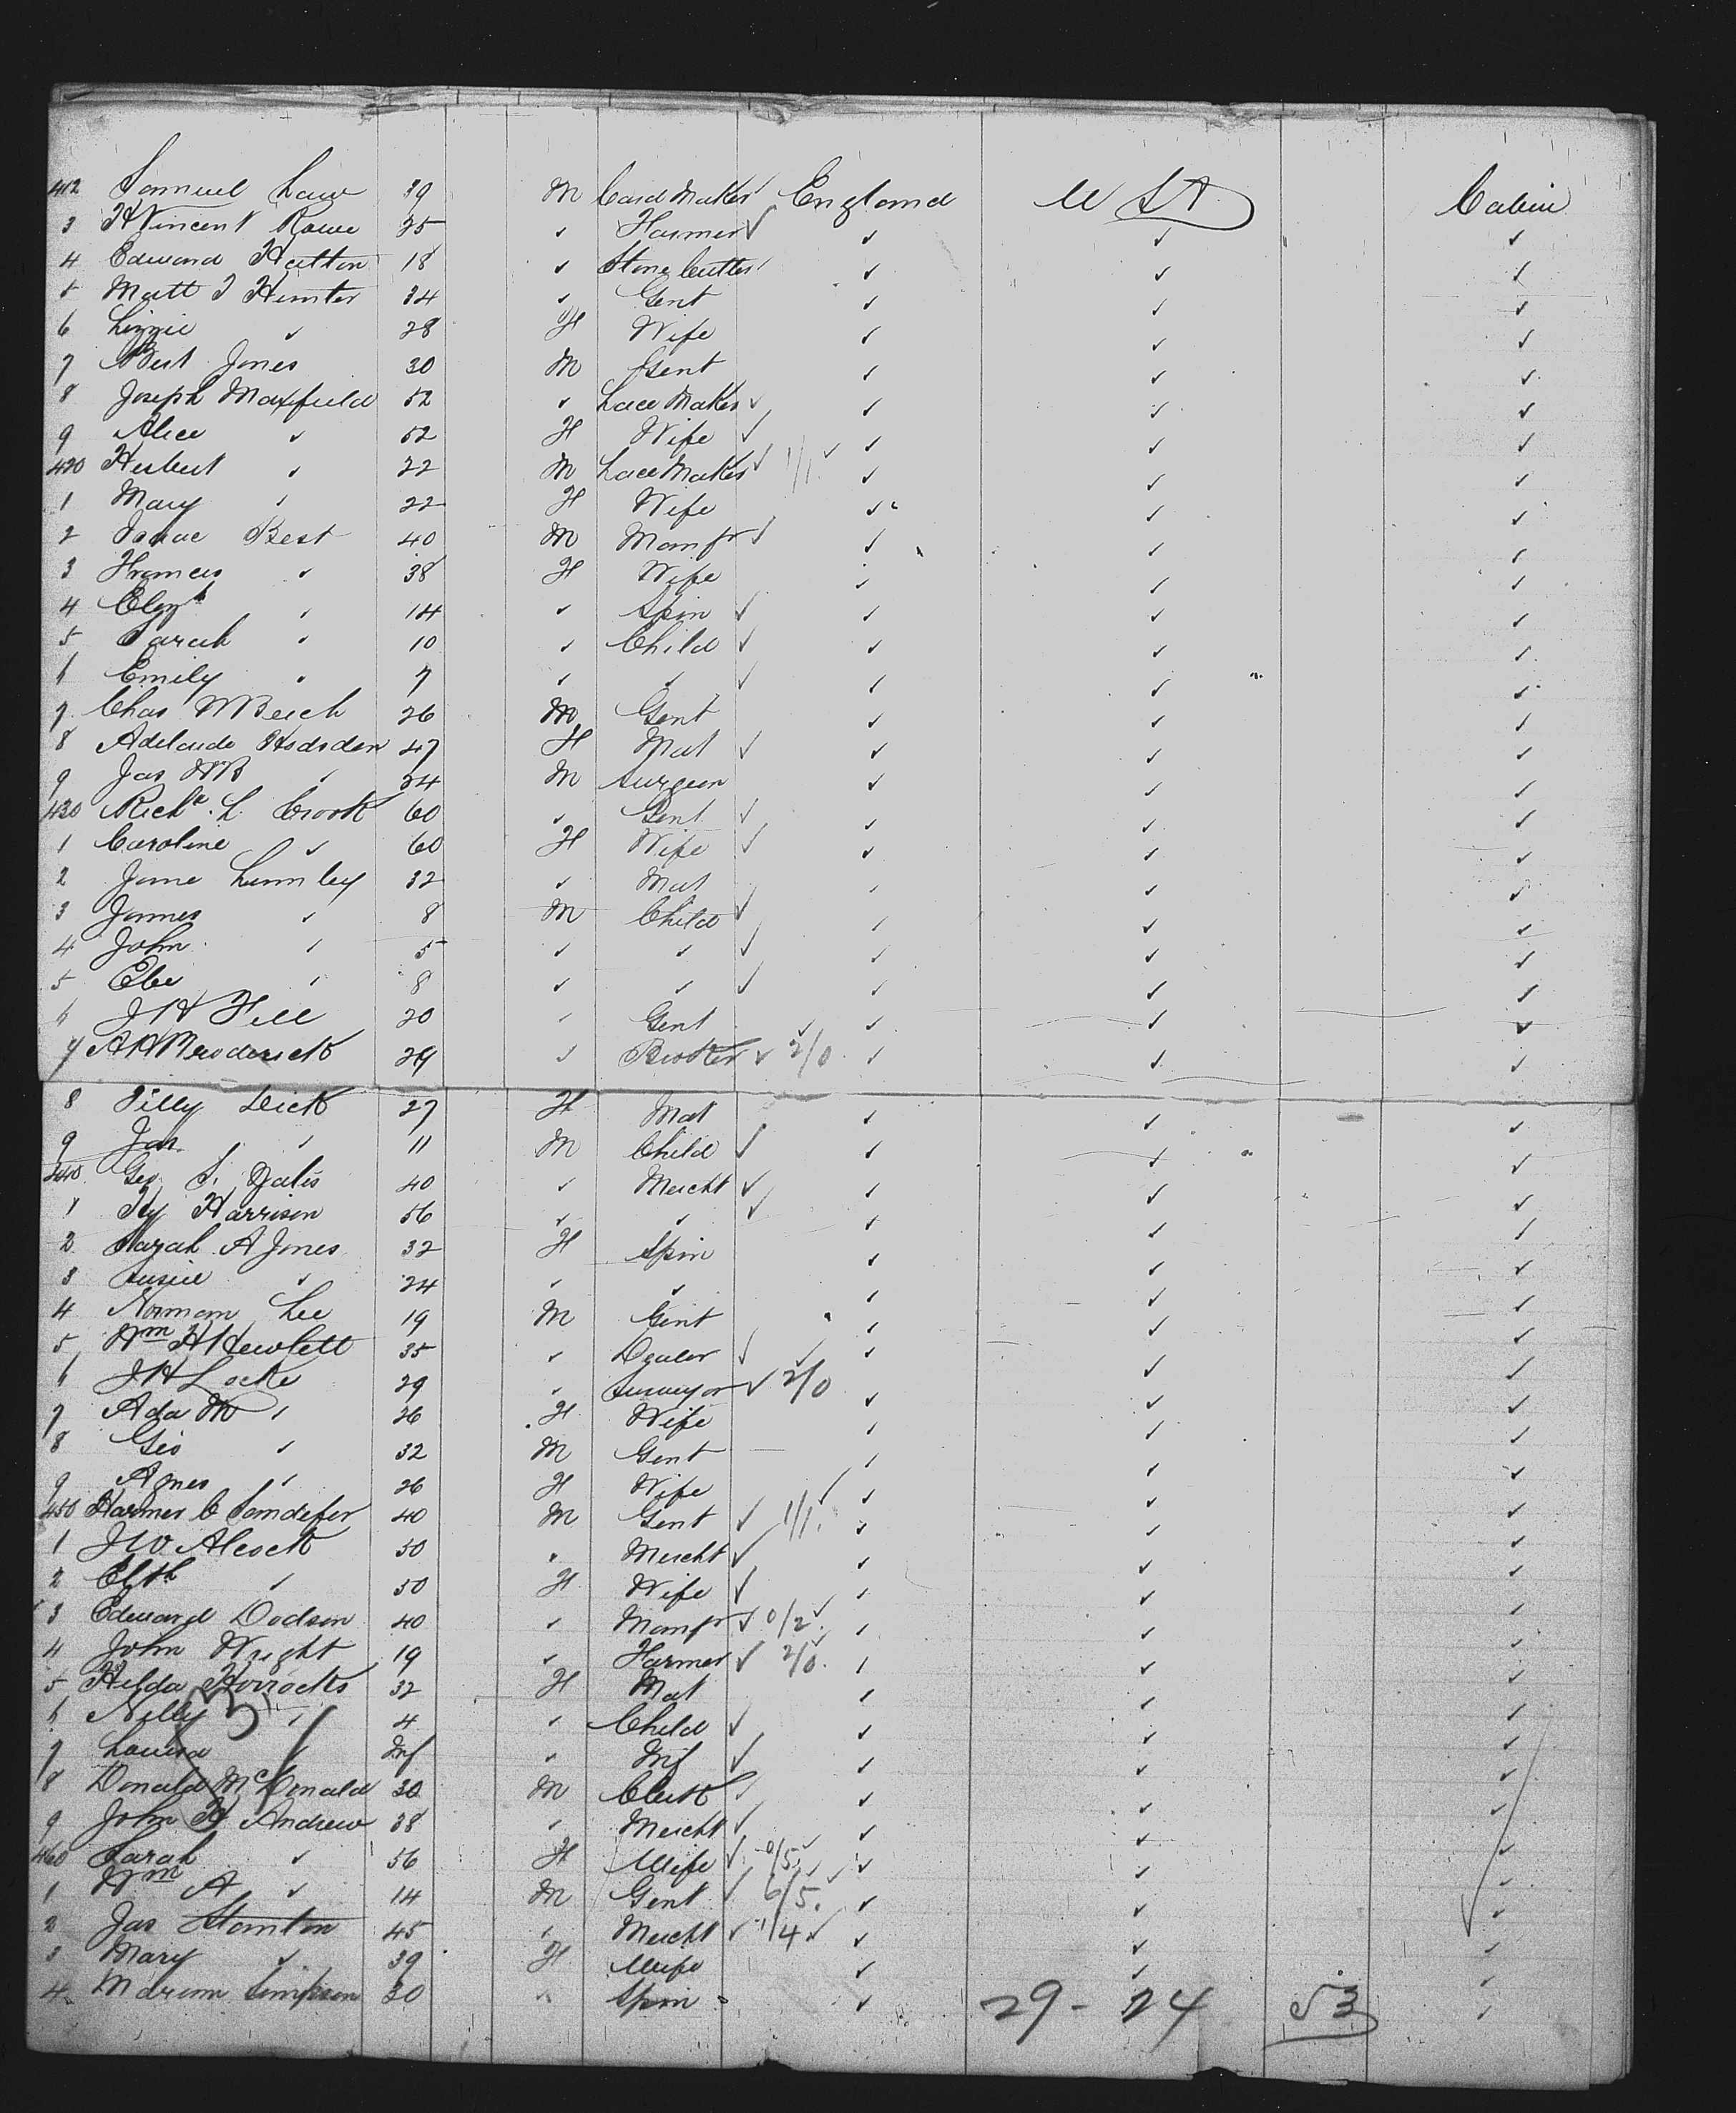 412 Samuel Law 39 M Card Maker ✓ England U St Cabin
3 H Vincent Rowe 25 ✓ Farmer ✓ ✓ ✓ ✓
4 Edward Hutton 18 ✓ Stone Cutter ✓ ✓ ✓ ✓
5 Matt J Hunter 34 ✓ Gent ✓ ✓ ✓
6 Lizzie ✓ 28 F Wife ✓ ✓ ✓
7 Jones 30 M Gent ✓ ✓ ✓
8 Joseph Maxfield 52 ✓ Lace Maker ✓ ✓ ✓ ✓
9 Alice ✓ 52 F Wife ✓ ✓ ✓ ✓
420 Herbert ✓ 22 M Lace Maker ✓ 1/1 ✓ ✓ ✓ ✓
1 Mary ✓ 22 F Wife ✓ ✓ ✓
2 Isaac Best 40 M Manfr ✓ ✓ ✓ ✓
3 Frances ✓ 38 F Wife ✓ ✓ ✓
4 Elizth ✓ 14 ✓ Spin ✓ ✓ ✓ ✓
5 Sarah ✓ 10 ✓ Child ✓ ✓ ✓ ✓
6 Emily ✓ 7 ✓ ✓ ✓ ✓ ✓ ✓
7 Chas 26 M Gent ✓ ✓ ✓
8 Adelaide Hodsden 47 F Mat ✓ ✓ ✓ ✓
9 Jas ✓ 24 M Surgeon ✓ ✓ ✓
430 Richd. L. Crook 60 ✓ Gent ✓ ✓ ✓ ✓
1 Caroline ✓ 60 F Wife ✓ ✓ ✓ ✓
2 Jane Lumley 32 ✓ Mat ✓ ✓ ✓ ✓
3 James ✓ 8 M Child ✓ ✓ ✓ ✓
4 John ✓ 5 ✓ ✓ ✓ ✓ ✓ ✓
5 ✓ 8 ✓ ✓ ✓ ✓ ✓ ✓
6 J H Hill 20 ✓ Gent ✓ ✓ ✓
7 29 ✓ Broker ✓ 2/0 ✓ ✓ ✓ ✓
8 Tilly Dick 27 F Mat ✓ ✓ ✓
9 Jas ✓ 11 M Child ✓ ✓ ✓ ✓
440 Geo S. Yates 40 ✓ Mercht ✓ ✓ ✓ ✓
1 Hy Harrison 56 ✓ ✓ ✓ ✓ ✓ ✓
2 Sarah A Jones 32 F Spin ✓ ✓ ✓
3 Susie ✓ 24 ✓ ✓ ✓ ✓ ✓
4 Norman Lee 19 M Gent ✓ ✓ ✓
5 Wm H Hewlett 35 ✓ Dealer ✓ ✓ ✓ ✓
6 J H Locke 29 ✓ Surveyor ✓ 2/0 ✓ ✓ ✓ ✓
7 Ada M ✓ 26 F Wife ✓ ✓ ✓
8 Geo ✓ 32 M Gent ✓ ✓ ✓
9 Agnes ✓ 26 F Wife ✓ ✓ ✓
450 C Sandefer 40 M Gent ✓ 1/1 ✓ ✓ ✓ ✓
1 J W Alcock 50 ✓ Mercht ✓ ✓ ✓ ✓
2 Elth ✓ 50 F Wife ✓ ✓ ✓ ✓
3 Edward Dodson 40 ✓ Manfr ✓ 0/2 ✓ ✓ ✓ ✓
4 John Wright 19 ✓ Farmer ✓ 2/0 ✓ ✓ ✓ ✓
5 Hilda Horrocks 32 F Mat ✓ ✓ ✓
6 Nelly ✓ 4 ✓ Child ✓ ✓ ✓ ✓
7 Louisa ✓ Inf ✓ Inf ✓ ✓ ✓ ✓
8 Donald McDonald 30 M Clerk ✓ ✓ ✓ ✓
9 John H Andrew 38 ✓ Mercht ✓ ✓ ✓ ✓
460 Sarah ✓ 56 F Wife ✓ 0/5 ✓ ✓ ✓ ✓
1 Wm A ✓ 14 M Gent ✓ 6/5 ✓ ✓ ✓ ✓
2 Jas Stanton 45 ✓ Mercht ✓ 1/4 ✓ ✓ ✓ ✓
3 Mary ✓ 39 F Wife ✓ ✓ ✓
4 Simpson 30 ✓ Spin ✓ ✓ ✓
29 - 24 53